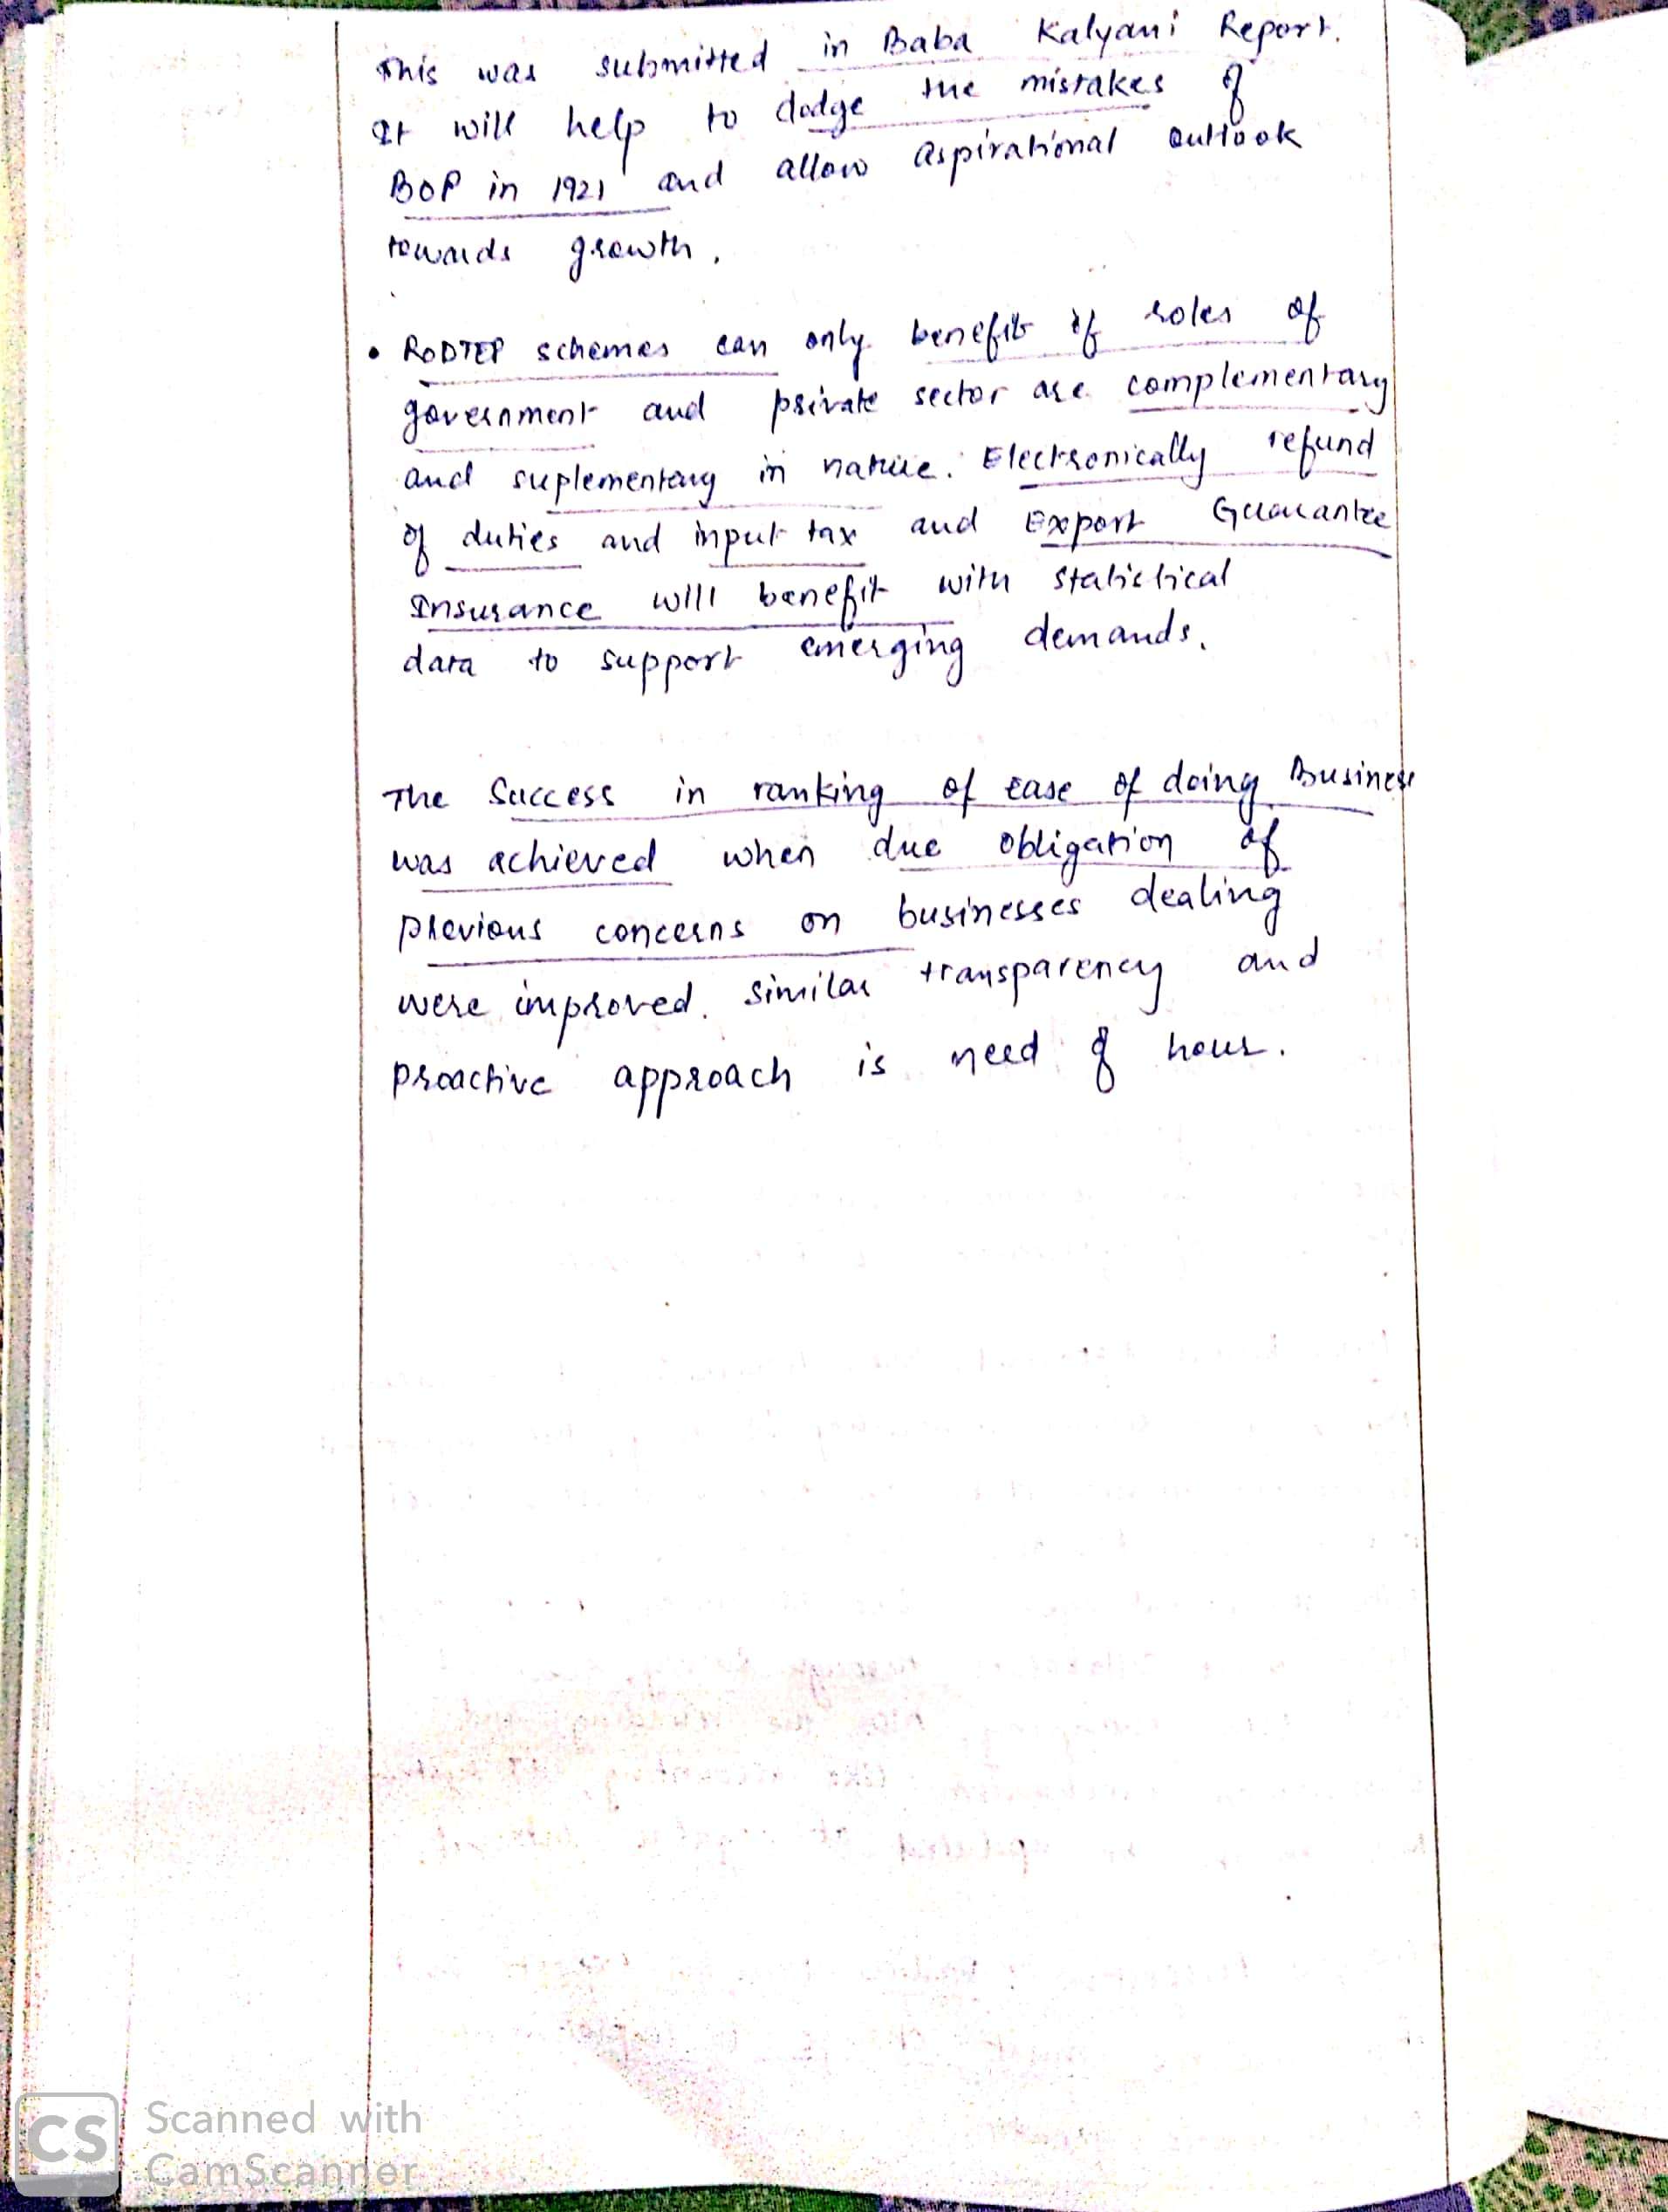 This was submitted in Baba Kalyani Report.
It will help to dodge the mistakes of
BOP in 1921 and allow aspirational outlook
towards growth.
• RODTEP schemes can only benefit if roles of
government and private sector are complementary
and suplementary in nature. Electronically refund
of duties and input tax and Export Guarantee
Insurance will benefit with statistical
data to support emerging demands.
The Success in ranking of ease of doing Business
was achieved when due obligation of
previous concerns on businesses dealing
were improved. Similar transparency and
proactive approach is need of hour.
CS Scanned with
CamScanner